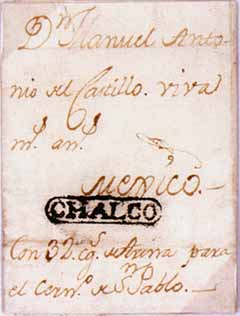 Dn. Manuel Anto-
nio del Castillo. viva
ms. as.
Mexico.
CHALCO
Con 32 cgs. de Arina para
el Cerno. de Sn. Pablo.